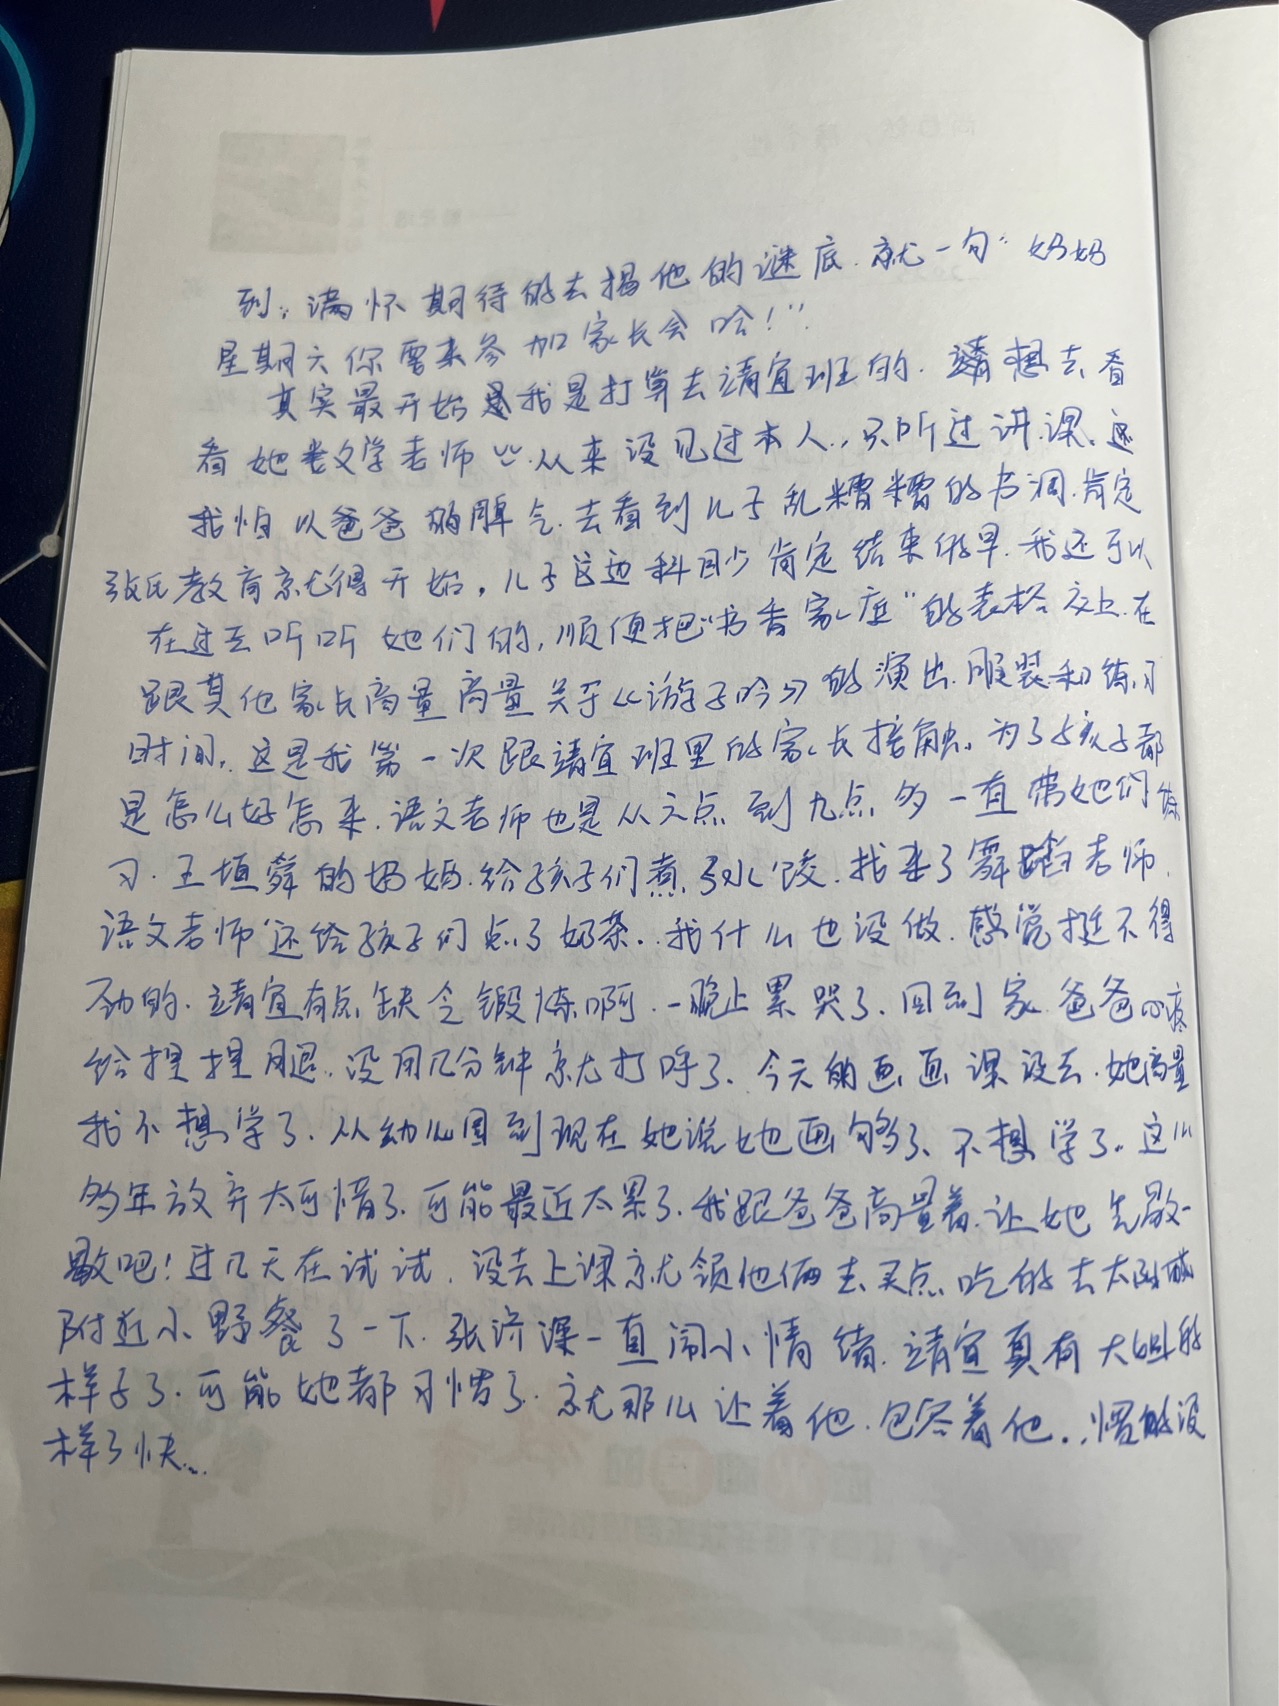 到，满怀期待的去揭他的谜底．就一句“妈妈
星期六你需来参加家长会哈！”．
其实最开始是我是打算去靖宜班的．请想去看
看她老文学老师 从来没见过本人．,只听过讲课、还
我怕以爸爸的脾气．去看到儿子乱糟糟的书洞．肯定
张氏教育就得开始，儿子这边科目少肯定结束的早．我还可以
在过去听听她们的，顺便把“书香家庭”的表格交上．在
跟其他家长商量商量关于《游子吟》的演出．服装和练习
时间．这是我第一次跟靖宜班里的家长接触．为了孩子都
是怎么好怎来．语文老师也是从六点到九点多一直带她们练
习．王垣舜的妈妈．给孩子们煮了水饺．找来了舞蹈老师．
语文老师还给孩子们点了奶茶．．我什么也没做．感觉挺不得
劲的．靖宜有点缺少锻炼啊．一晚上累哭了．回到家．爸爸心疼
给捏捏腿．没用几分钟就打呼了、今天的画画课没去．她商量
我不想学了．从幼儿园到现在她说她画够了、不想学了．这么
多年放弃太可惜了．可能最近太累了．我跟爸爸商量着．让她先歇
歇吧！过几天在试试．没去上课就领他俩去买点吃的去太阳城
附近小野餐了一下．张济深一直闹小情绪．靖宜真有大姐的
样子了．可能她都习惯了．就那么让着他．包容着他．．惯的没
样了快...